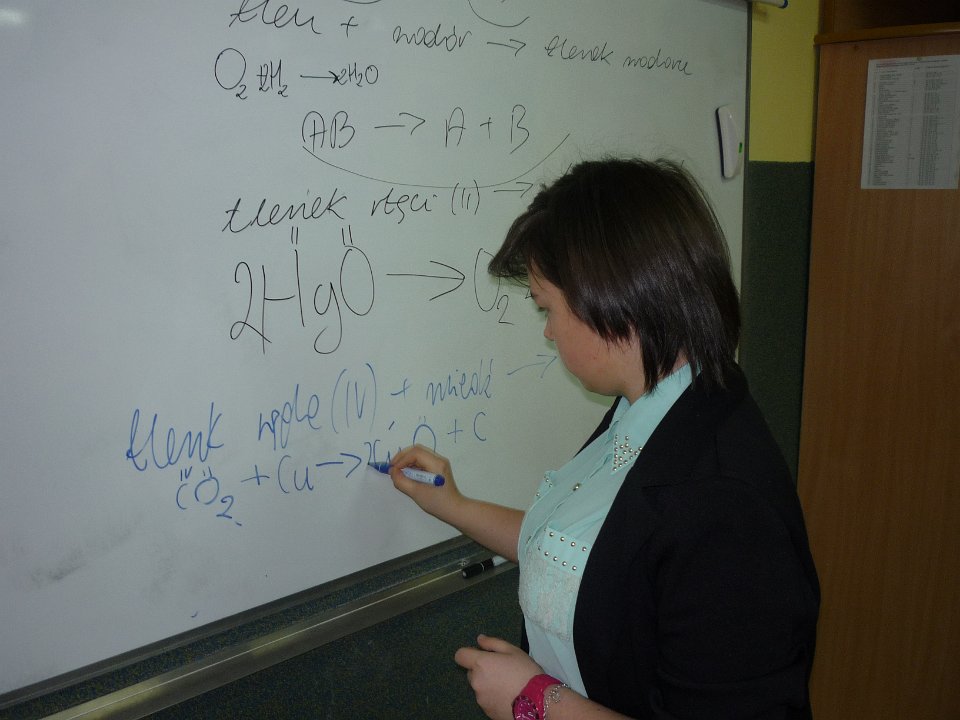 tlen + wodór → tlenek wodoru
O₂ + 2H₂ → 2H₂O
AB → A + B
tlenek rtęci (II) →
2HgO → O₂
tlenek węgla (IV) + miedź →
CO₂ + Cu → O + C